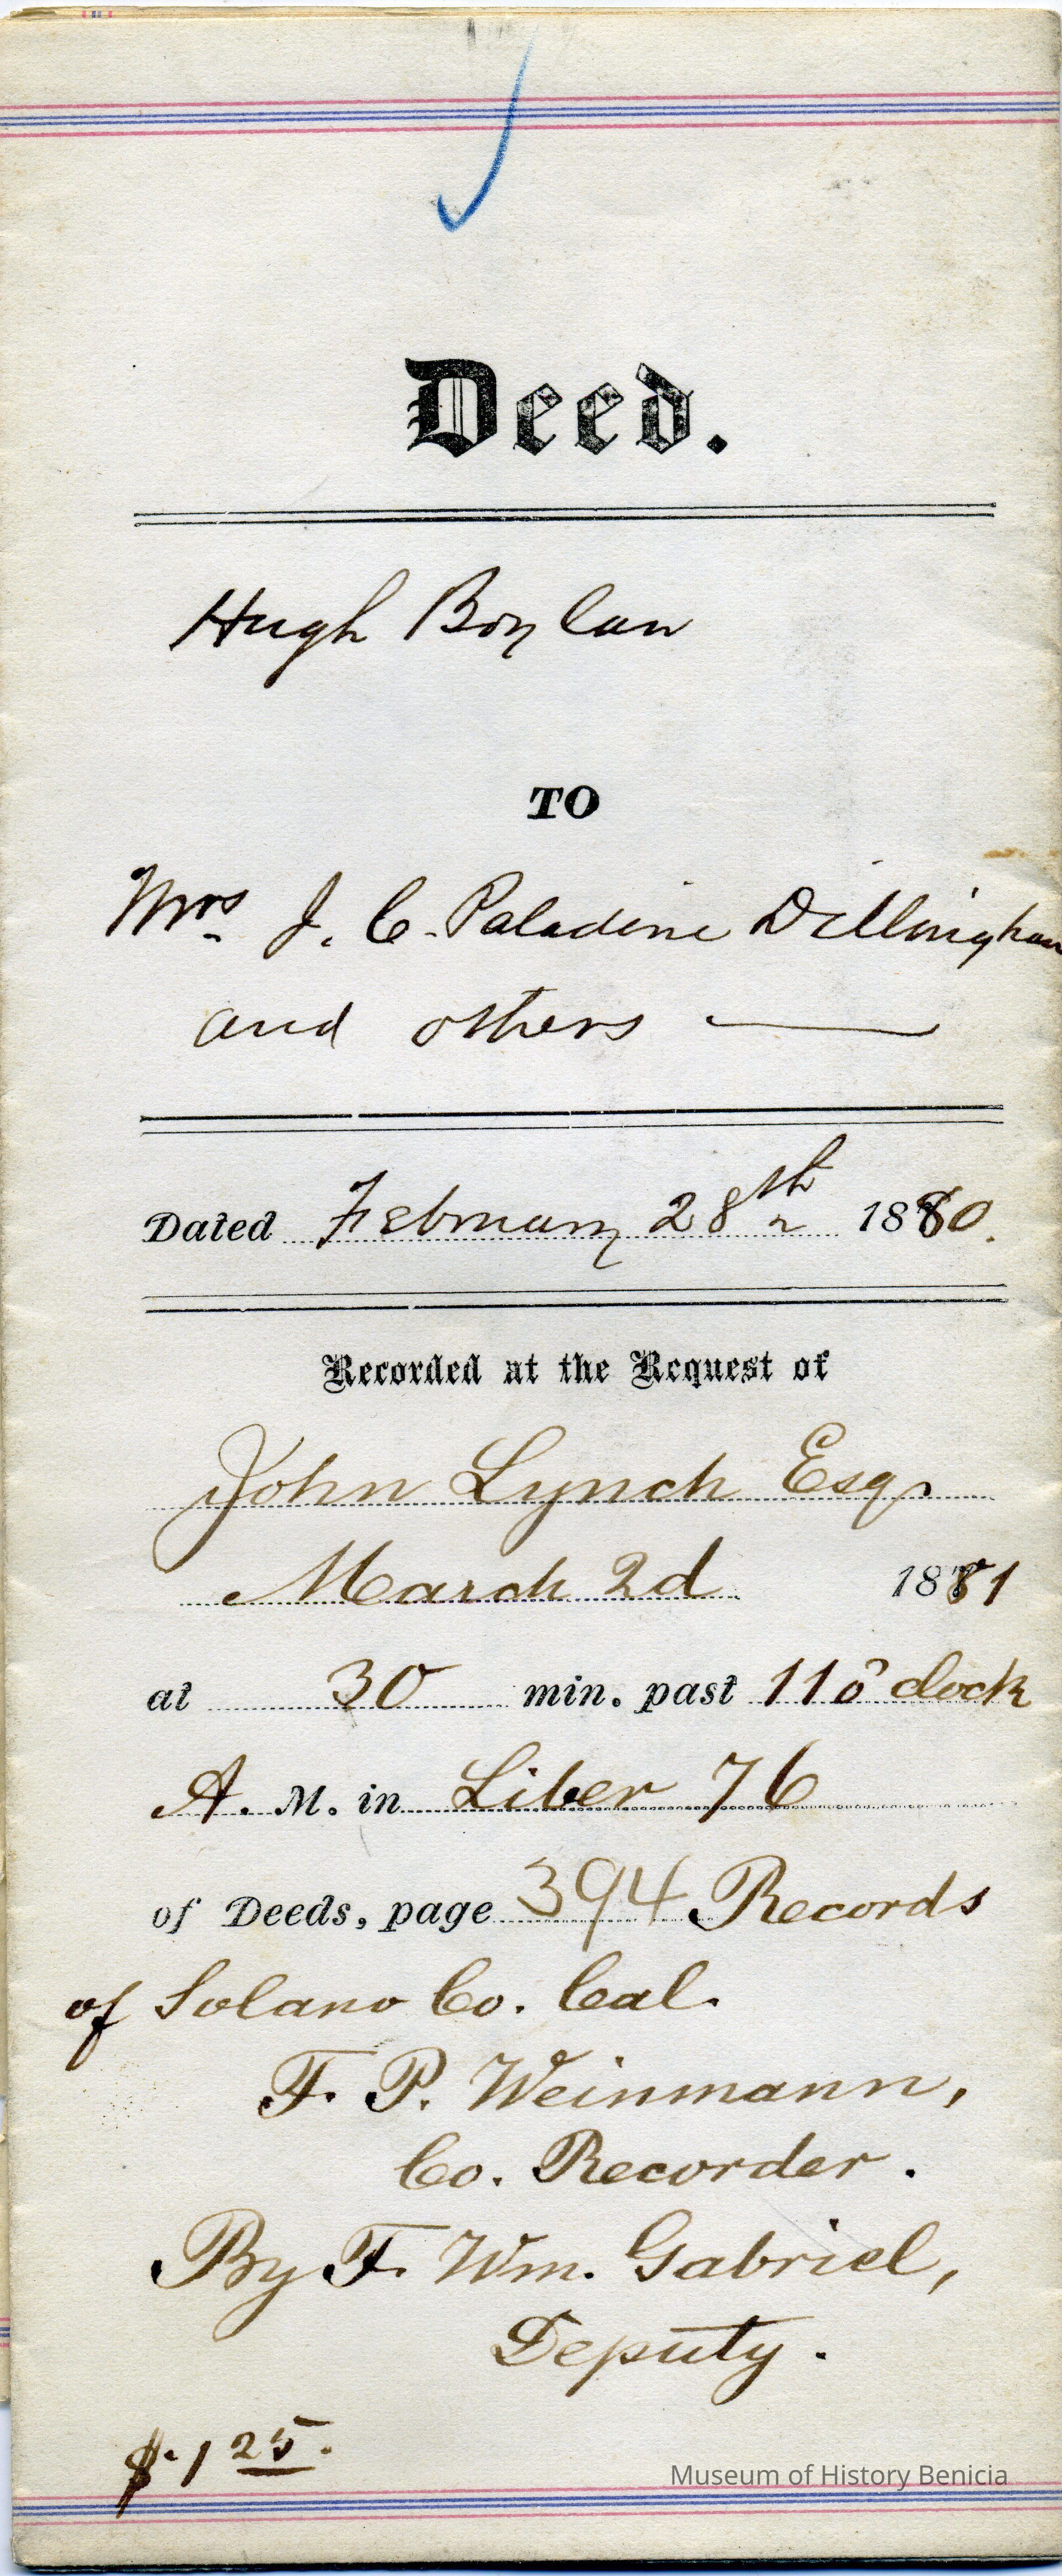 Deed.
Hugh Boylan
TO
Mrs. J. C. Paladini Dillingham
and others
Dated February 28th 1880.
Recorded at the Request of
John Lynch Esq.
March 2d 1881
at 30 min. past 11 o'clock
A. M. in Liber 76
of Deeds, page 394 Records
of Solano Co. Cal.
F. P. Weinmann,
Co. Recorder.
By F. Wm. Gabriel,
Deputy.
$.1 25.
Museum of History Benicia